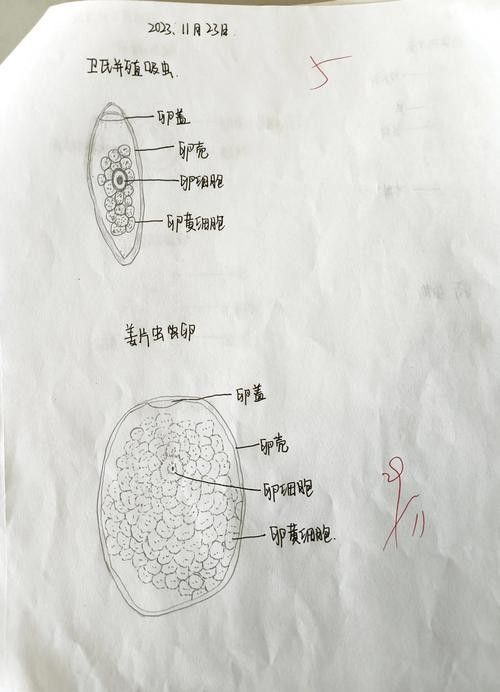 2023.11月23日.
卫氏并殖吸虫.
5
卵盖
卵壳
卵细胞
卵黄细胞
姜片虫虫卵
卵盖
卵壳
卵细胞
卵黄细胞.
29/11